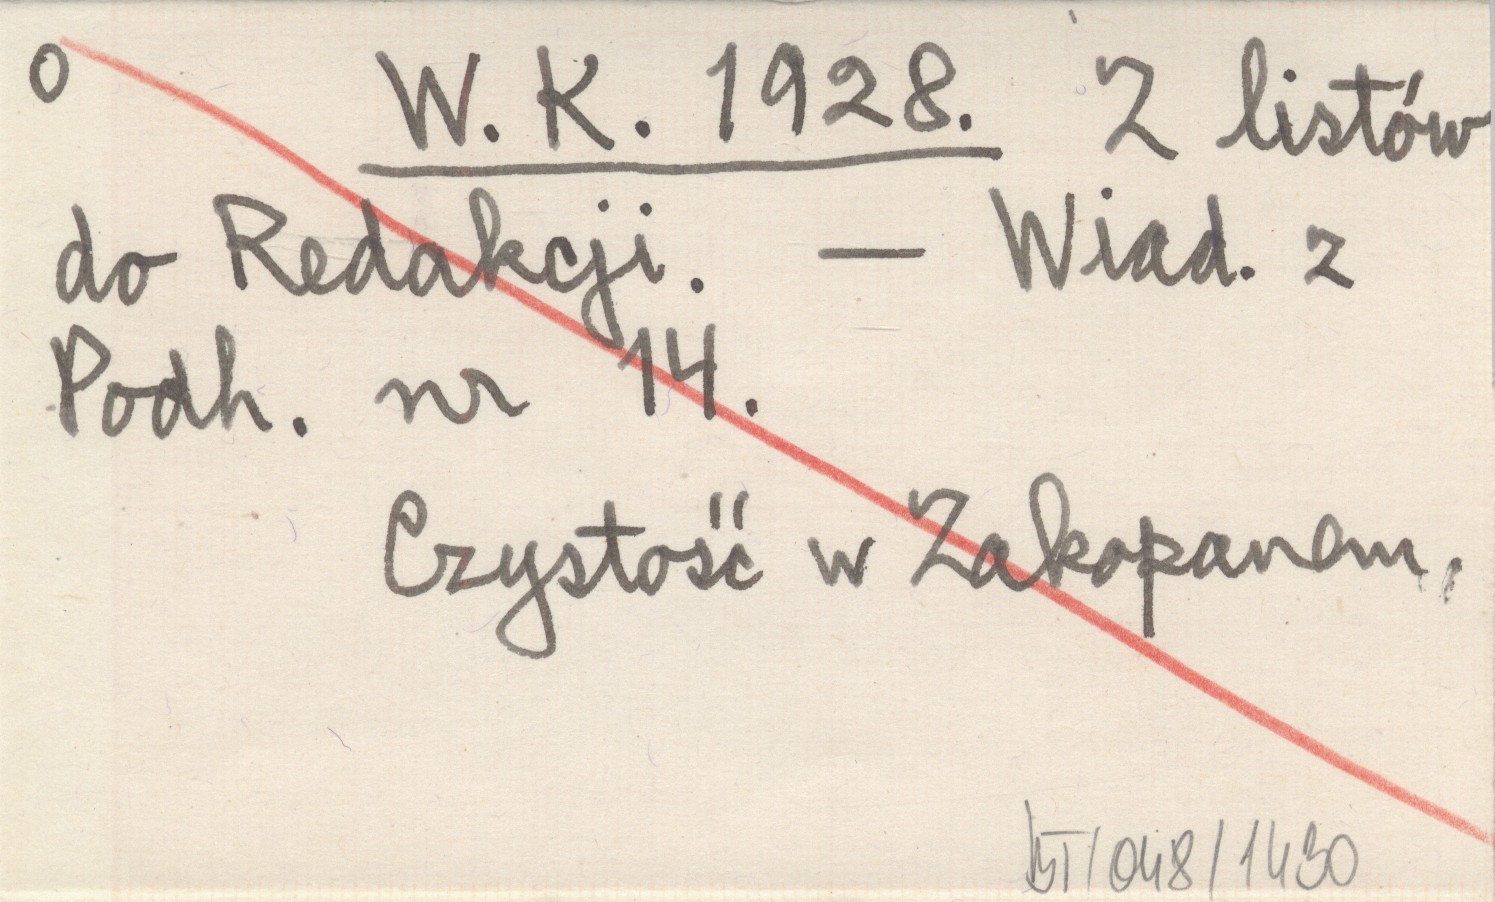 o W. K. 1928. Z listów
do Redakcji. — Wiad. z
Podh. nr 14.
Czystość w Zakopanem.
/048/1430